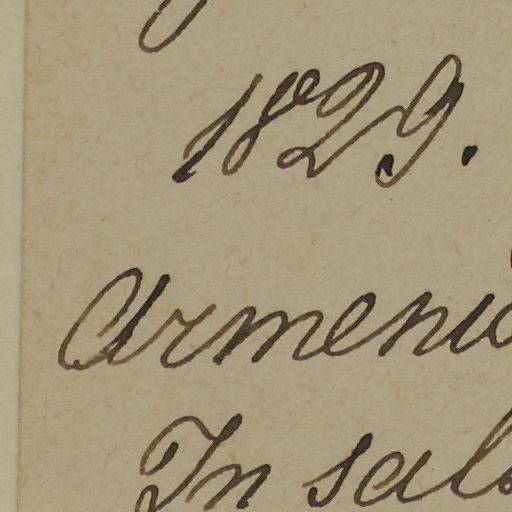 1829.
Armenia
In sal